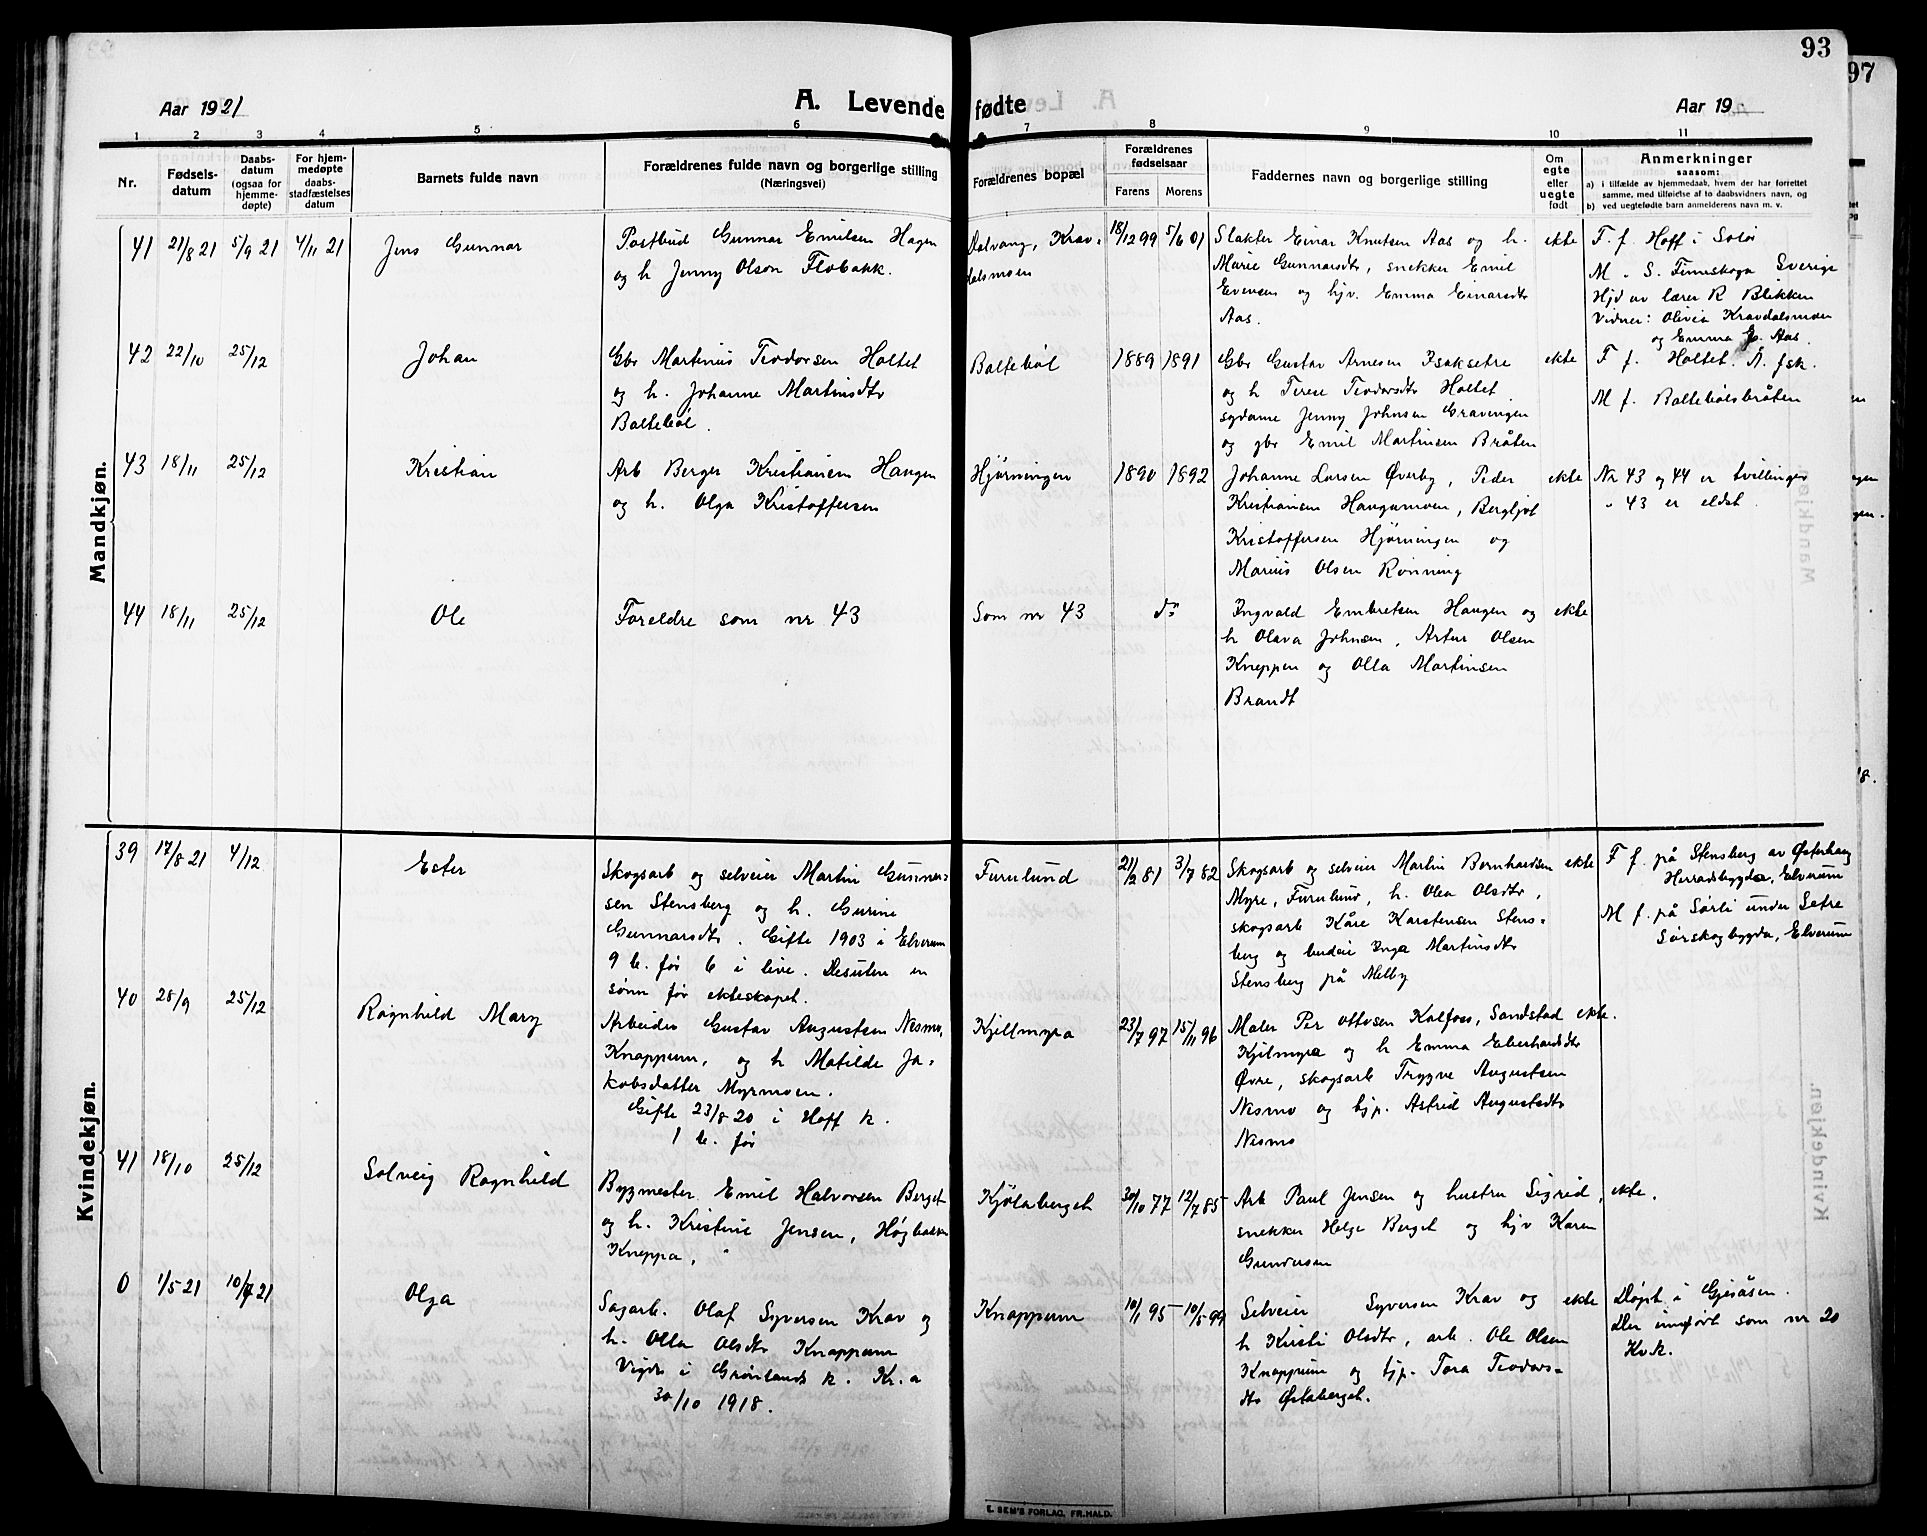 93
97
Aar 1921
A. Levende fødte
Aar 19
1 2 3 4 5 6 7 8 9 10 11
Nr.
Fødsels-
datum
Daabs-
datum
(ogsaa for
hjemme-
døpte)
For hjem-
medøpte
daabs-
stadfæstelses
datum
Barnets fulde navn
Forældrenes fulde navn og borgerlige stilling
(Næringsvei)
Forældrenes bopæl
Forældrenes
fødselsaar
Farens Morens
Faddernes navn og borgerlige stilling
Om
egte
eller
uegte
født
Anmerkninger
saasom:
a) i tilfælde av hjemmedaab, hvem der har forrettet
samme, med tilføielse af to daabsvidners navn, og
b) ved uegtefødte barn anmelderens navn m. v.
Mandkjøn.
41 21/8 21 5/9 21 4/11 21
Jens Gunnar
Postbud Gunnar Emilsen Hagen
og h Jenny Olson Flobakk.
Dalvang, Krav-
dalsmoen
18/12 99 5/6 01
Slakter Einar Knutsen Aas og h.
Marie Gunnarsdtr, snekker Emil
Evensen og hjv. Emma Einarsdtr
Aas.
ekte
F. f. Hoff i Solør
M. " S. Finnskoga Sverige
Hjd av lærer R Blikken
Vidner: Olivia Kravdalsmoen
og Emma Jo. Aas.
42 22/10 25/12
Johan
Gbr Martinius Teodorsen Holtet
og h. Johanne Martinsdtr
Baltebøl.
Baltebøl
1889 1891
Gbr Gustav Arnesen Isaksetre
og h Terese Teodorsdtr Holtet
sydame Jenny Johnsen Gravingen
og gbr Emil Martinsen Bråten
ekte
F f. Holtet. Å. fsk.
M f. Baltebølsbråten
43 18/11 25/12
Kristian
Arb Berger Kristiansen Haugen
og h. Olga Kristoffersen
Hjørningen
1890 1892
Johanne Larsen Øverby, Peder
Kristiansen Haugamoen, Bergljot
Kristoffersen Hjørningen og
Marius Olsen Rønning
ekte
Nr 43 og 44 er tvillinger
" 43 er eldst.
44 18/11 25/12
Ole
Foreldre som nr 43
Som nr 43
do
Ingvald Embretsen Haugen og
h Olava Johnsen, Artur Olsen
Kneppen og Olla Martinsen
Brandt
ekte
Kvindekjøn.
39 17/8 21 4/12
Ester
Skogsarb og selveier Martin Gunner-
sen Stensberg og h. Gurine
Gunnarsdtr. Gifte 1903 i Elverum
9 b. før 6 i live. Desuten en
sønn før ekteskapet.
Furulund
21/2 81 3/7 82
Skogsarb og selveier Martin Bernhardsen
Myre, Furulund, h. Olea Olsdtr,
skogsarb Kåre Karstensen Stens-
berg og budeie Inga Martinsdtr
Stensberg på Melby
ekte
F f. på Stensberg av Østerhaug
Herradsbygda, Elverum
M f. på Sørli under Setre
Sørskogbygda, Elverum
40 28/9 25/12
Ragnhild Mary
Arbeider Gustav Augustsen Nesmo,
Knappum, og h Matilde Ja-
kobsdatter Myrmoen.
Gifte 23/8 20 i Hoff k.
1 b. før
Kjellmyra
23/7 97 15/11 96
Maler Per Ottosen Kalfoss, Sandstad
Kjelmyra og h Emma Eberhardsdtr
Øvre, skogsarb Trygve Augustsen
Nesmo og hjp. Astrid Augustsdtr
Nesmo
ekte.
41 18/10 25/12
Solveig Ragnhild
Bygmester Emil Halvorsen Berget
og h. Kristine Jensen, Høgbakken
Kneppa,
Kjølaberget
30/10 77 12/7 85
Arb Paul Jensen og hustru Sigrid,
snekker Helge Berget og hjv Karen
Gundersen
ekte.
0 1/5 21 10/7 21
Olga
Sagarb. Olaf Syversen Krav og
h. Olla Olsdtr Knappum
Vigde i Grønlands k. Kr.a
30/10 1918.
Knappum
10/1 95 10/5 99
Selveier Syversen Krav og
h Kristi Olsdtr, arb. Ole Olsen
Knappum og hjp. Tora Teodors-
dtr Østaberget.
ekte
Døpt i Gjesåsen.
Der innført som nr 20
Kv.k.
E. SEM'S FORLAG, FR.HALD.